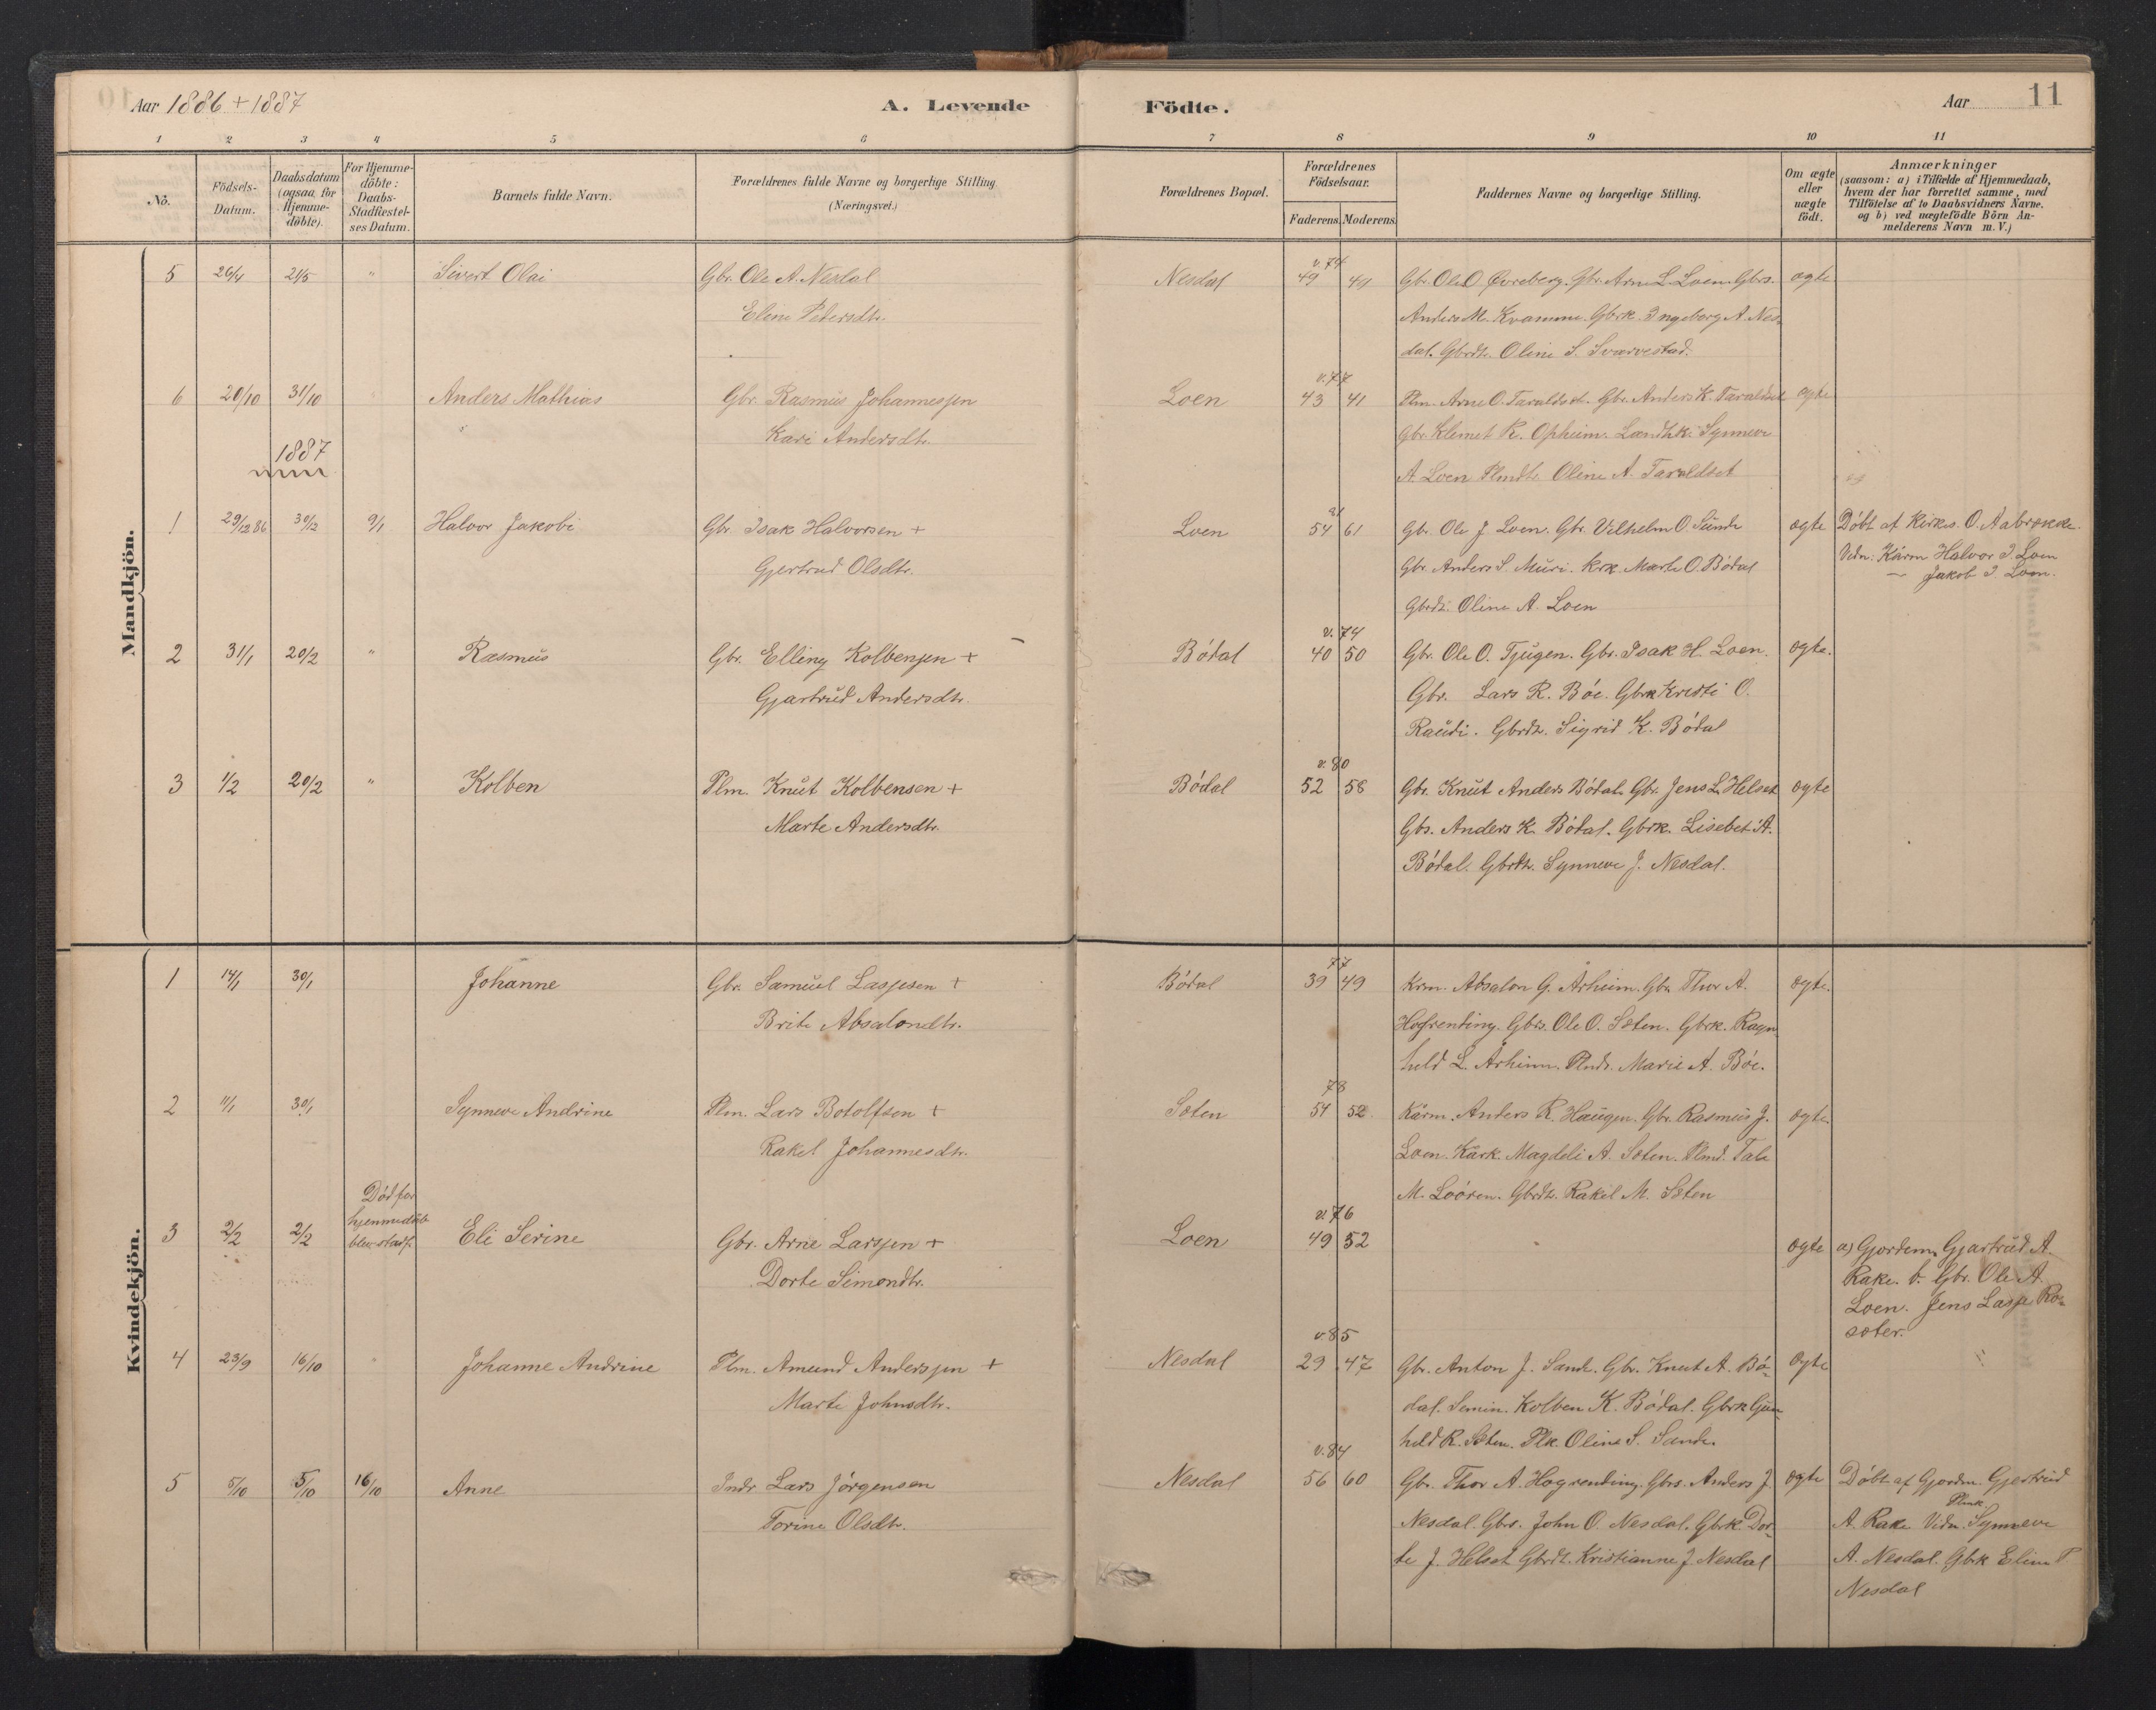 Aar 1886 + 1887
A. Levende
Födte.
Aar
11
1 2 3 4 5 6 7 8 9 10 11
No.
Födsels-Datum.
Daabsdatum (ogsaa for Hjemme-döbte).
For Hjemme-döbte: Daabs-Stadfæstel-ses Datum.
Barnets fulde Navn.
Forældrenes fulde Navne og borgerlige Stilling (Næringsvei.)
Forældrenes Bopæl.
Forældrenes Födselsaar.
Faderens. Moderens.
Faddernes Navne og borgerlige Stilling.
Om ægte eller uægte födt.
Anmærkninger
(saasom: a) i Tilfælde af Hjemmedaab,
hvem der har forrettet samme, med
Tilföielse af to Daabsvidners Navne.
og b) ved uægtefödte Börn An-
melderens Navn m. V.)
Mandkjön.
5 26/4 21/5 " Sivert Olai Gbr. Ole A. Nesdal Nesdal v. 74 49 44 Gbr. Ole O. Øvreberg. Gbr. Arne L. Loen. Gbrs. ægte
Eline Petersdtr. Anders M. Kvamme. Gbrk. Ingeborg A. Nes-
dal. Gbrdtr. Oline S. Svarvestad.
6 20/10 31/10 Anders Mathias Gbr. Rasmus Johannessen Loen v. 77 43 41 Plm. Arne O. Taraldset. Gbr. Anders K. Taraldset ægte
Kari Andersdtr. Gbr. Klemet R. Opheim. Landhk. Synneve
A. Loen Plmdtr. Oline A. Taraldset
1887
1 29/12 86 30/12 9/1 Halvor Jakobi Gbr. Isak Halvorsen + Loen 81 54 61 Gbr. Ole J. Loen. Gbr. Vilhelm O. Sunde ægte Döbt af Kirkes. O. Aabrekke.
Gjertrud Olsdtr. Gbr. Anders S. Muri. Krk. Marte O. Bödal Vidn: Kårm Halvor I. Loen
Gbrdtr. Oline A. Loen — Jakob I. Loen.
2 31/1 20/2 " Rasmus Gbr. Elling Kolbensen + Bödal v. 74 40 50 Gbr. Ole O. Tjugen. Gbr. Isak H. Loen. ægte.
Gjartrud Andersdtr. Gbr. Lars R. Böe. Gbrk Kristi O.
Raudi. Gbrdtr. Sigrid K. Bödal
3 1/2 20/2 " Kolben Plm. Knut Kolbensen + Bödal v. 80 52 58 Gbr. Knut Anders Bödal. Gbr. Jens L. Helset ægte
Marte Andersdtr. Gbs. Anders K. Bödal. Gbrk. Lisebet A.
Bödal. Gbrdtr. Synneve J. Nesdal.
Kvindekjön.
1 14/1 30/1 Johanne Gbr. Samuel Lassesen + Bödal 77 39 49 Krm. Absalon G. Årheim. Gbr. Thor A. ægte.
Brite Absalondtr. Hogrenting. Gbrs. Ole O. Sæten. Gbrk. Ragn-
hild L. Årheim. Plmdr. Marie A. Böe.
2 11/1 30/1 Synneve Andrine Plm. Lars Botolfsen + Sæten 78 54 52. Kårm. Anders R. Haugen. Gbr. Rasmus J. ægte.
Rakel Johannesdtr. Loen. Kårk. Magdeli A. Sæten. Plmd. Tale
M. Loören. Gbrdtr. Rakel M. Sæten
3 2/2 2/2 Död før hjemmedåb blev stadf. Eli Serine Gbr. Arne Larssen + Loen v. 76 49 52 ægte a) Gjordem. Gjartrud A.
Dorte Simondtr. Rake. b. Gbr. Ole A.
Loen. Jens Lasse Ro-
sæter.
4 23/9 16/10 Johanne Andrine Plm. Amund Anderssen + Nesdal v. 85 29 47 Gbr. Anton J. Sande. Gbr. Knut A. Bö- ægte "
Marte Johnsdtr. dal. Semin. Kolben K. Bödal. Gbrk Gun-
hild R. Sæten. Plk. Oline S. Sande.
5 5/10 5/10 16/10 Anne Indr. Lars Jörgensen Nesdal v. 84 56 60 Gbr. Thor A. Hogrenting. Gbrs. Anders J. ægte Döbt af Gjordm. Gjertrud
Torine Olsdtr. Nesdal. Gbrs. John O. Nesdal. Gbrk. Dor- A. Rake Vidn. Plmk. Synneve
te J. Helset Gbrdt. Kristianne J Nesdal A. Nesdal. Gbrk Eline P
Nesdal